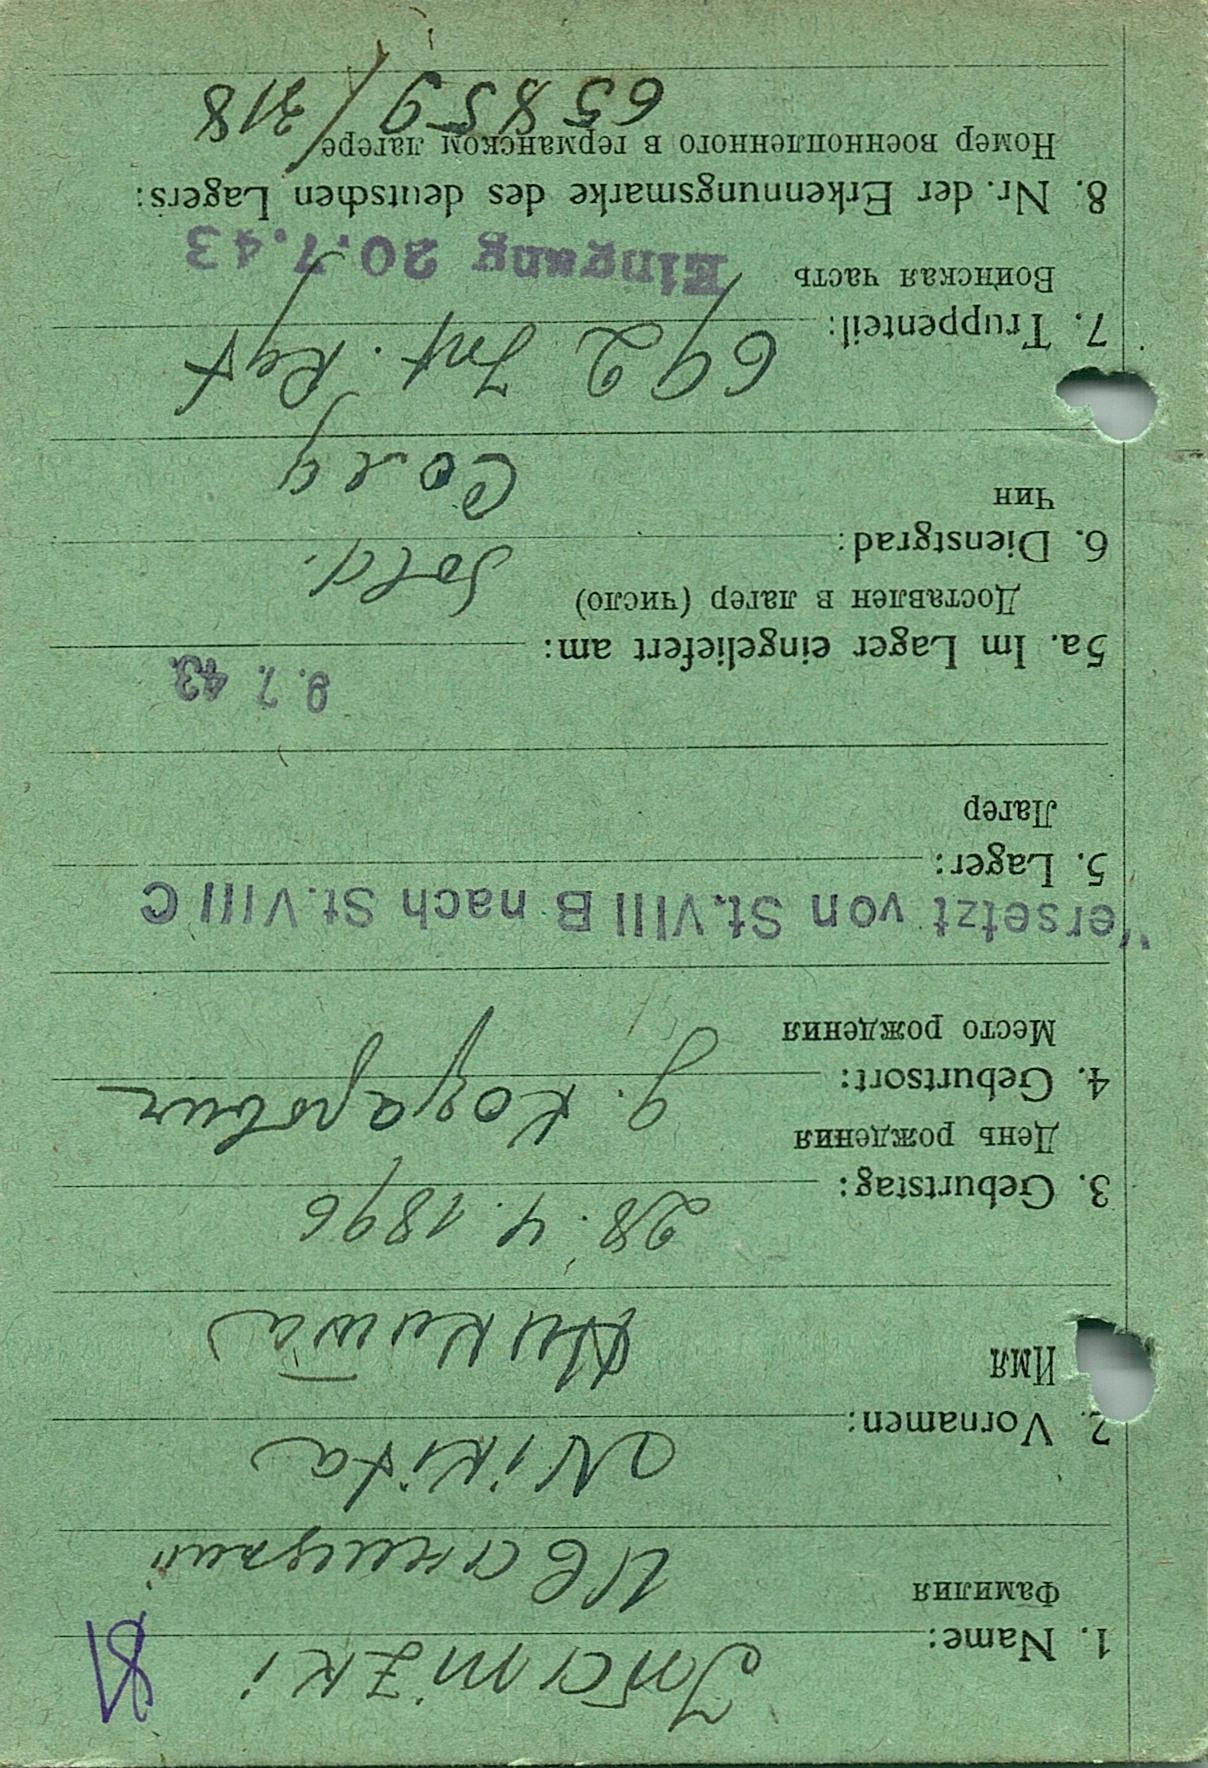 81
1. Name:
Фамилия
Ивахницкий
2. Vornamen: Nikita
Имя Никита
3. Geburtstag: 28. 4. 1896
День рождения
4. Geburtsort: g.
Место рождения
Versetzt von St. VIII B nach St. VIII C
5. Lager:
Лагер
9. 7. 43.
5a. Im Lager eingeliefert am:
Доставлен в лагер (число)
6. Dienstgrad: Sold.
Чин Солд
7. Truppenteil: 692 Inf. Regt
Воинская часть Eingang 20.7.43
8. Nr. der Erkennungsmarke des deutschen Lagers:
Номер военнопленного в германском лагере
65859/318